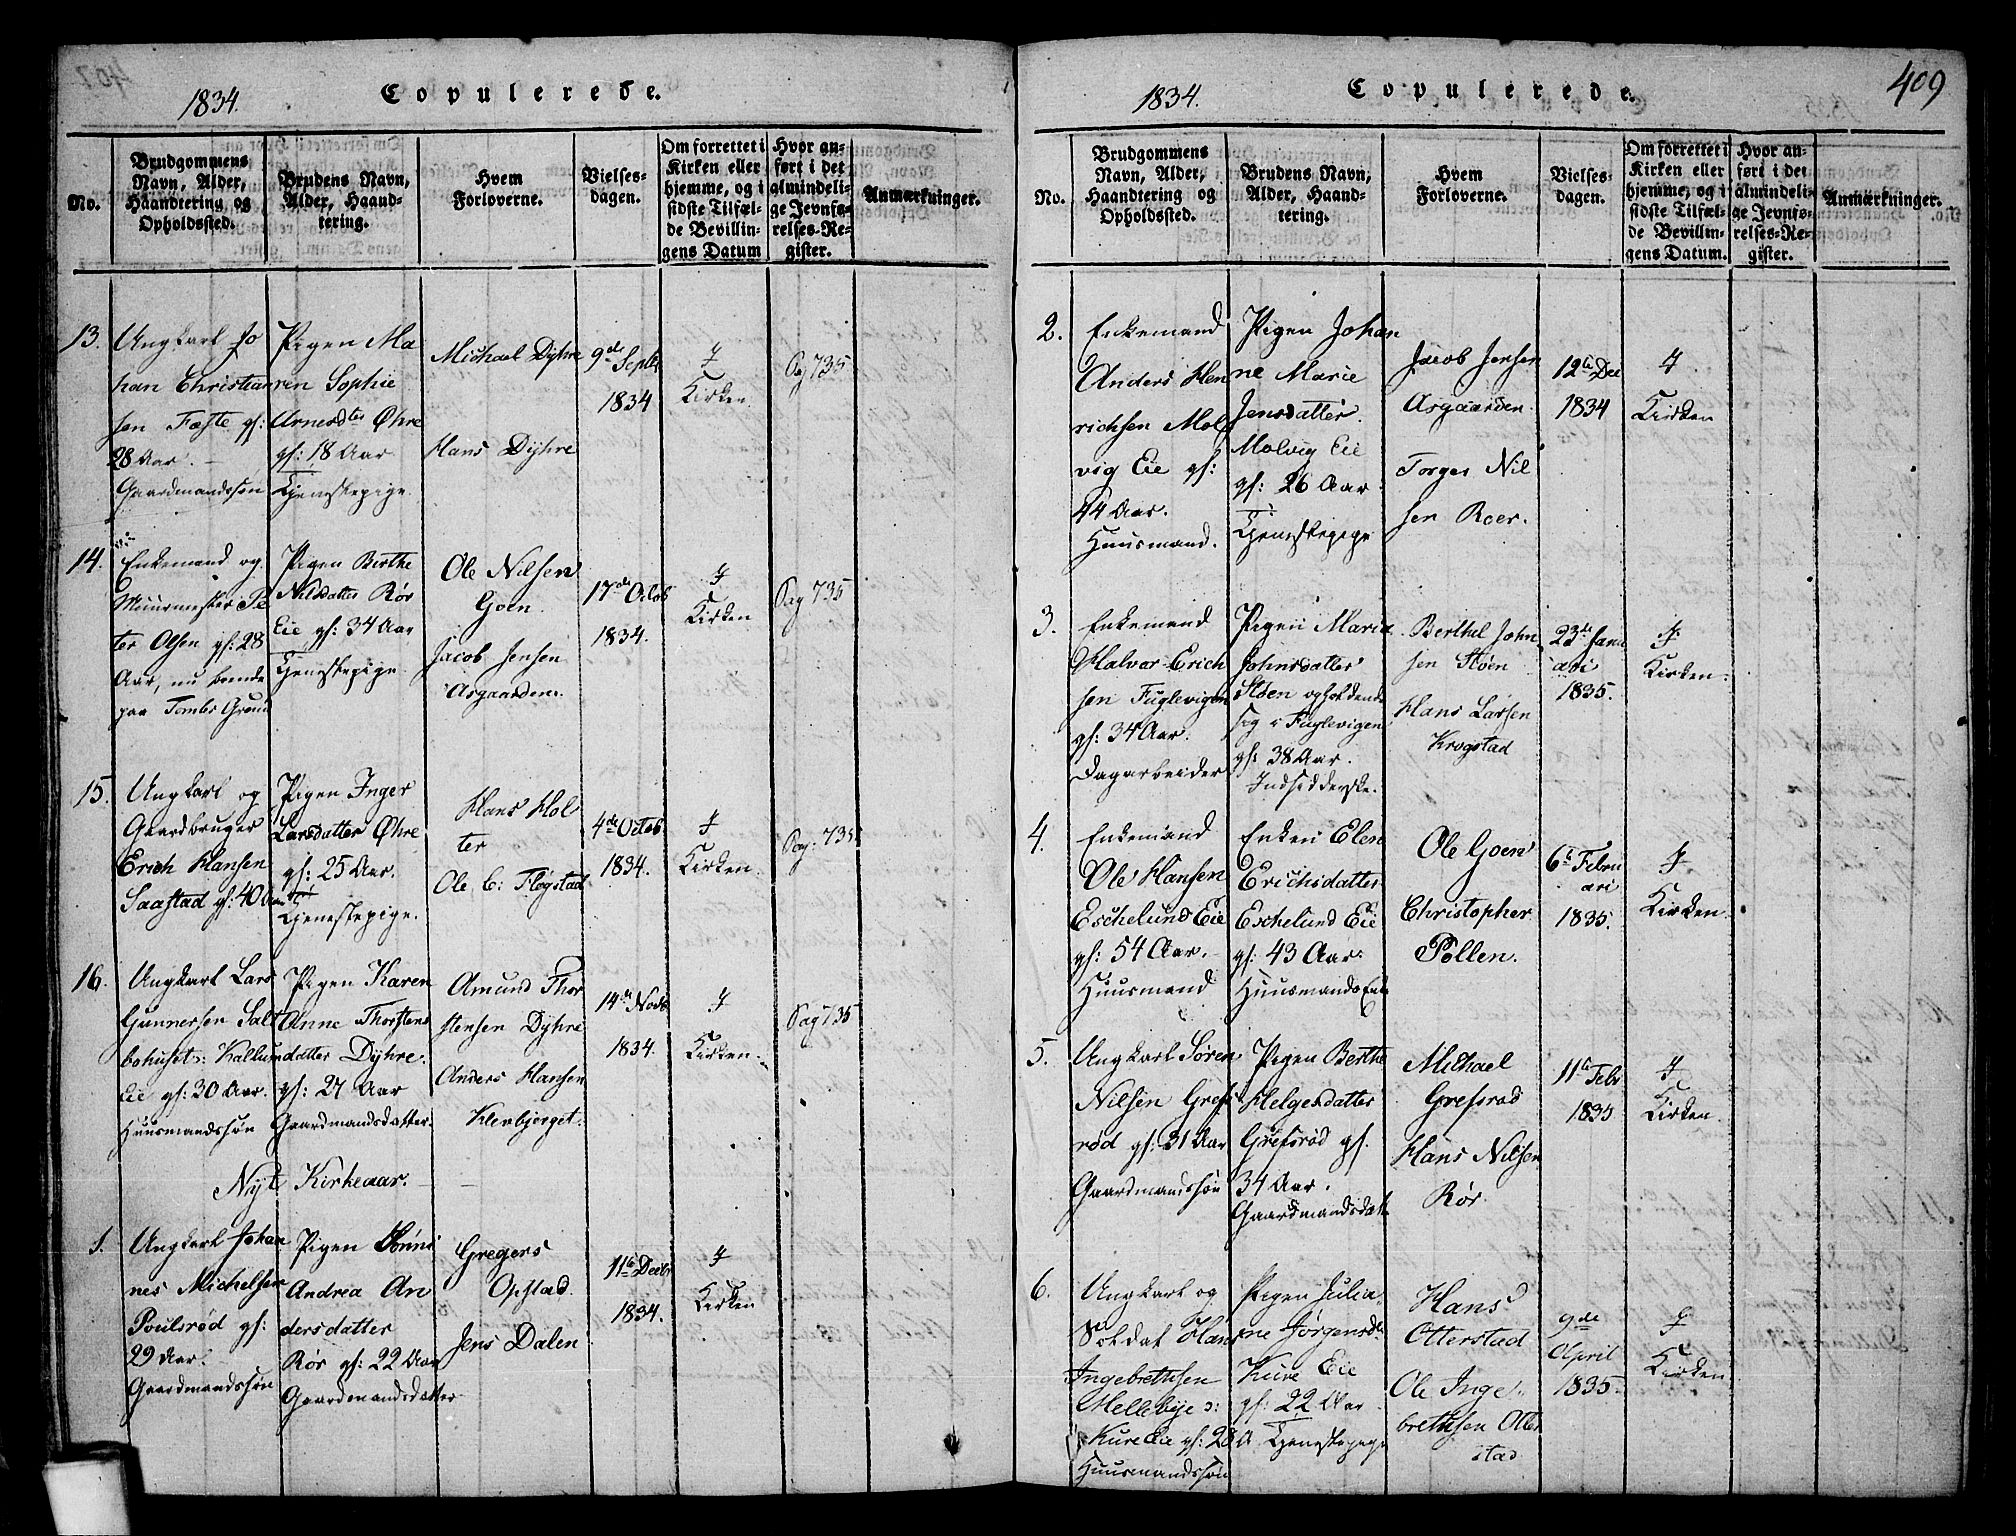 1834. Copulerede.
No.
Brudgommens Navn, Alder, Haandtering og Opholdssted.
Brudens Navn, Alder, Haandtering.
Hvem Forloverne.
Vielsesdagen.
Om forrettet i Kirken eller hjemme, og i sidste Tilfælde Bevillingens Datum
Hvor anført i det almindelige Jevnførelses-Register.
Anmærkninger.
13.
Ungkarl Jo
han Christian
sen Feste gl:
28 Aar.
Gaardmandssøn
Pigen Ma
ren Sophie
Arnesdtr Øhre
gl: 18 Aar
Tjenestepige.
Michael Dyhre
Hans Dyhre
9de Septb
1834
I
Kirken
Pag 735
14.
Enkemand og
Muurmester Pe
ter Olsen gl: 28
Aar, nu boende
paa Tombs Grund
Pigen Berthe
Nilsdatter Rør
Eie gl: 34 Aar
Tjenestepige
Ole Nilsen
Goen.
Jacob Jensen
Asgaarden.
17de Octob
1834.
I
Kirken
Pag 735
15.
Ungkarl og
Gaardbruger
Erich Hansen
Saastad gl: 40 Aar
Pigen Inger
Larsdatter Øhre
gl: 25 Aar.
Tjenestepige.
Hans Hol
ter
Ole C: Fløgstad
4de Octob
1834.
I
Kirken.
Pag: 735
16.
Ungkarl Lars
Gunnersen Salt
bohuset: Kallum
Eie gl: 30 Aar.
Huusmandssøn
Pigen Karen
Anne Thorstens
datter Dyhre.
gl: 27 Aar
Gaardmandsdatter.
Amund Thor
stensen Dyhre
Anders Hansen
Klevbjerget.
14de Novb
1834.
I
Kirken.
Pag 735
Nyt Kirkeaar.
1.
Ungkarl Johan
nes Michelsen
Poulsrød gl:
29 Aar.
Gaardmandssøn
Pigen
Andrea An
dersdatter
Rør gl: 22 Aar
Gaardmandsdatter
Gregers
Opstad.
Jens Dalen
11te Decbr
1834.
I
Kirken
1834. Copulerede. 409
No.
Brudgommens Navn, Alder, Haandtering og Opholdssted.
Brudens Navn, Alder, Haandtering.
Hvem Forloverne.
Vielsesdagen.
Om forrettet i Kirken eller hjemme, og i sidste Tilfælde Bevillingens Datum.
Hvor anført i det almindelige Jevnførelses-Register.
Anmærkninger.
2.
Enkemand
Anders Hen
richsen Mol
vig Eie gl:
44 Aar.
Huusmand.
Pigen Johan
ne Marie
Jensdatter
Molvig Eie
gl: 26 Aar
Tjenestepige
Jacob Jensen
Asgaarden.
Torger Nil
sen Roer.
12te Dec
1834
I
Kirken
3.
Enkemand
Halvor Erich
sen Fuglevigen
gl: 34 Aar.
Dagarbeider
Pigen Maria
Johnsdatter
Støen opholdende
sig i Fuglevigen
gl: 38 Aar.
Indsidderske.
Berthel John
sen Støen
Hans Larsen
Krogstad
23de Janu
ari
1835.
I
Kirken.
4.
Enkemand
Ole Hansen
Eschelund Eie
gl: 54 Aar.
Huusmand
Enken Elen
Erichsdatter
Eschelund Eie
gl: 43 Aar.
Huusmands Enke
Ole Goen
Christopher
Pollen.
6te Febru
ari
1835.
I
Kirken.
5.
Ungkarl Søren
Nilsen Grefs
rød gl: 31 Aar
Gaardmandssøn
Pigen Berthe
Helgesdatter
Grefsrød gl.
34 Aar.
Gaardmandsdatt
Michael
Grefsrød
Hans Nilsen
Rør.
11te Febr
1835
I
Kirken.
6.
Ungkarl og
Soldat Hans
Ingebrethsen
Mellebye o:
Kure Eie gl: 28 A
Huusmandssøn
Pigen Julia
ne Jørgensdtr
Kure Eie
gl: 22 Aar
Tjenestepige
Hans
Otterstad
Ole Inge
brethsen Otter
stad
9de
April
1835.
I
Kirken.